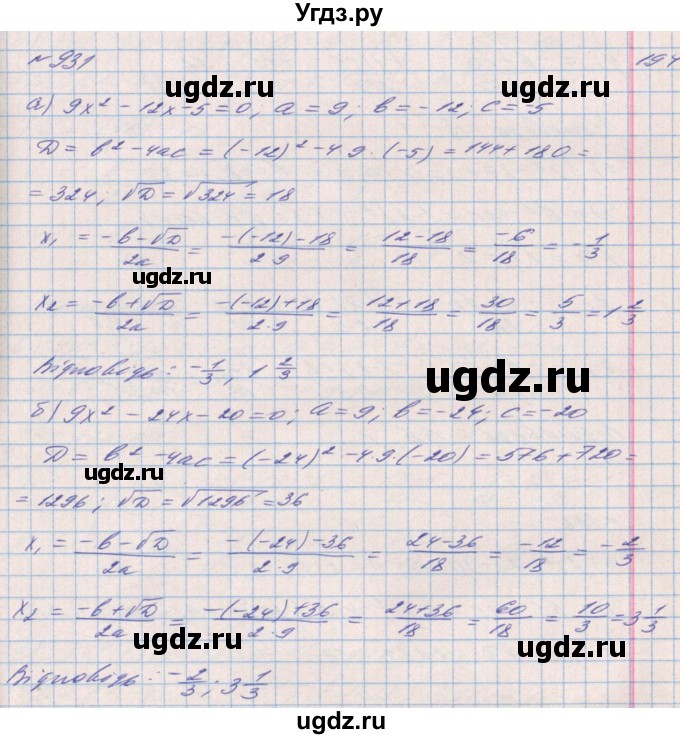 Угдз.ру
№931
194
ugdz.ru
ugdz.ru
а) 9x² - 12x - 5 = 0, a = 9; b = -12; c = -5
D = b² - 4ac = (-12)² - 4·9·(-5) = 144 + 180 =
= 324; √D = √324 = 18
ugdz.ru
x₁ = (-b - √D)/(2a) = (-(-12) - 18)/(2·9) = (12 - 18)/18 = -6/18 = -1/3
ugdz.ru
x₂ = (-b + √D)/(2a) = (-(-12) + 18)/(2·9) = (12 + 18)/18 = 30/18 = 5/3 = 1 2/3
ugdz.ru
Відповідь: -1/3, 1 2/3
б) 9x² - 24x - 20 = 0; a = 9; b = -24; c = -20
D = b² - 4ac = (-24)² - 4·9·(-20) = 576 + 720 =
ugdz.ru
= 1296; √D = √1296 = 36
ugdz.ru
x₁ = (-b - √D)/(2a) = (-(-24) - 36)/(2·9) = (24 - 36)/18 = -12/18 = -2/3
x₂ = (-b + √D)/(2a) = (-(-24) + 36)/(2·9) = (24 + 36)/18 = 60/18 = 10/3 = 3 1/3
ugdz.ru
ugdz.ru
Відповідь: -2/3; 3 1/3
ugdz.ru